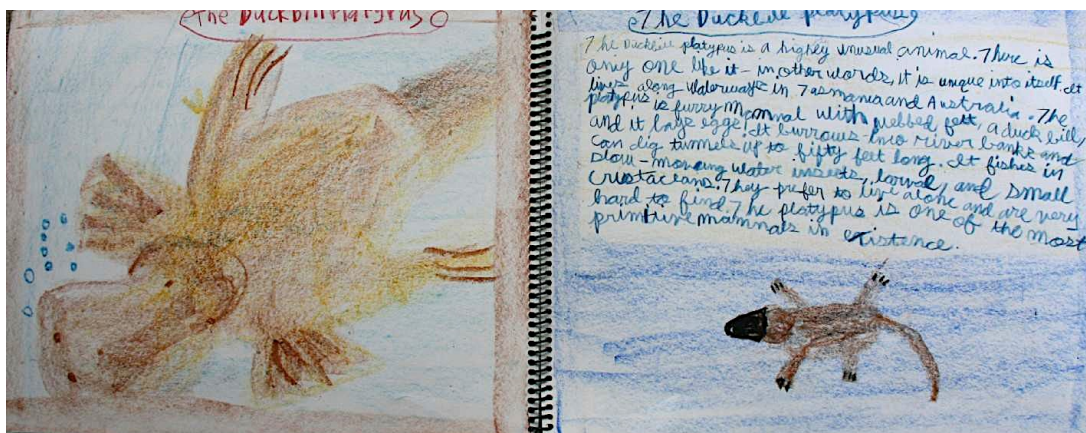 The Duckbill Platypus
The Duckbill platypus
The Duckbill platypus is a highly unusual animal. There is
only one like it - in other words, it is unique into itself. It
lives along waterways in Tasmania and Australia. The
platypus is furry mammal with webbed feet, a duck bill,
and it lays eggs. It burrows into river banks and
can dig tunnels up to fifty feet long. It fishes in
slow-moving water insects, larval, and small
crustaceans. They prefer to live alone and are very
hard to find. The platypus is one of the most
primitive mammals in existence.